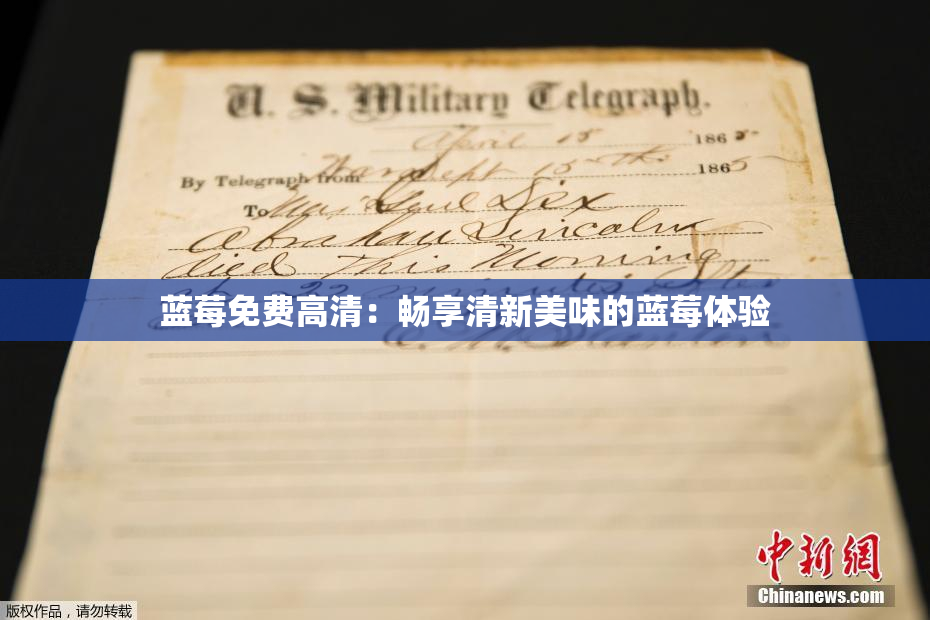 U. S. Military Telegraph.
April 15 1865
By Telegraph from War Dept 15th 1865
To Maj Genl Dix
Abraham Lincoln
died This Morning
at 22 minutes after
蓝莓免费高清：畅享清新美味的蓝莓体验
E. M. Stanton
中新網
Chinanews.com
版权作品，请勿转载